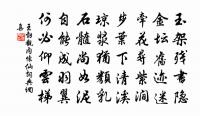 玉架殘書隱
金壇舊迹迷
牽花尋紫澗
步葉下清溪
瓊漿猶類乳
石髓尚如泥
自能成羽翼
何必仰雲梯
王勃觀内懷仙